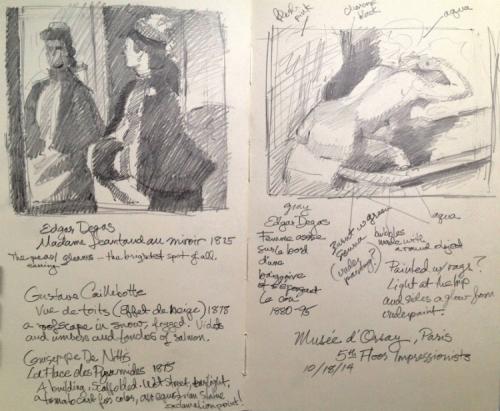 Edgar Degas
Madame Jeantaud au miroir 1875
The pearl gleams – the brightest spot of all.
Gustave Caillebotte
Vue de toits (Effet de Neige) 1878
a roofscape in snow, Violets
and umbers and touches of salmon.
Giuseppe De Nittis
La Place des Pyramides 1875
A building, scaffolded. Wet street, light,
a tomato cart for color, an equestrian statue
exclamation point!
pink
charcoal
black
aqua
gray
Edgar Degas
Femme assise
sur le bord
d'une
baignoire
et s'épongeant
le cou
1880-95
Burnt or green
Sienna
(under
painting?)
aqua
bubbles
made with
a round object
Painted w/rags?
Light at the hip
and sides a glow from
underpaint.
Musée d'Orsay, Paris
5th Floor Impressionists
10/18/14